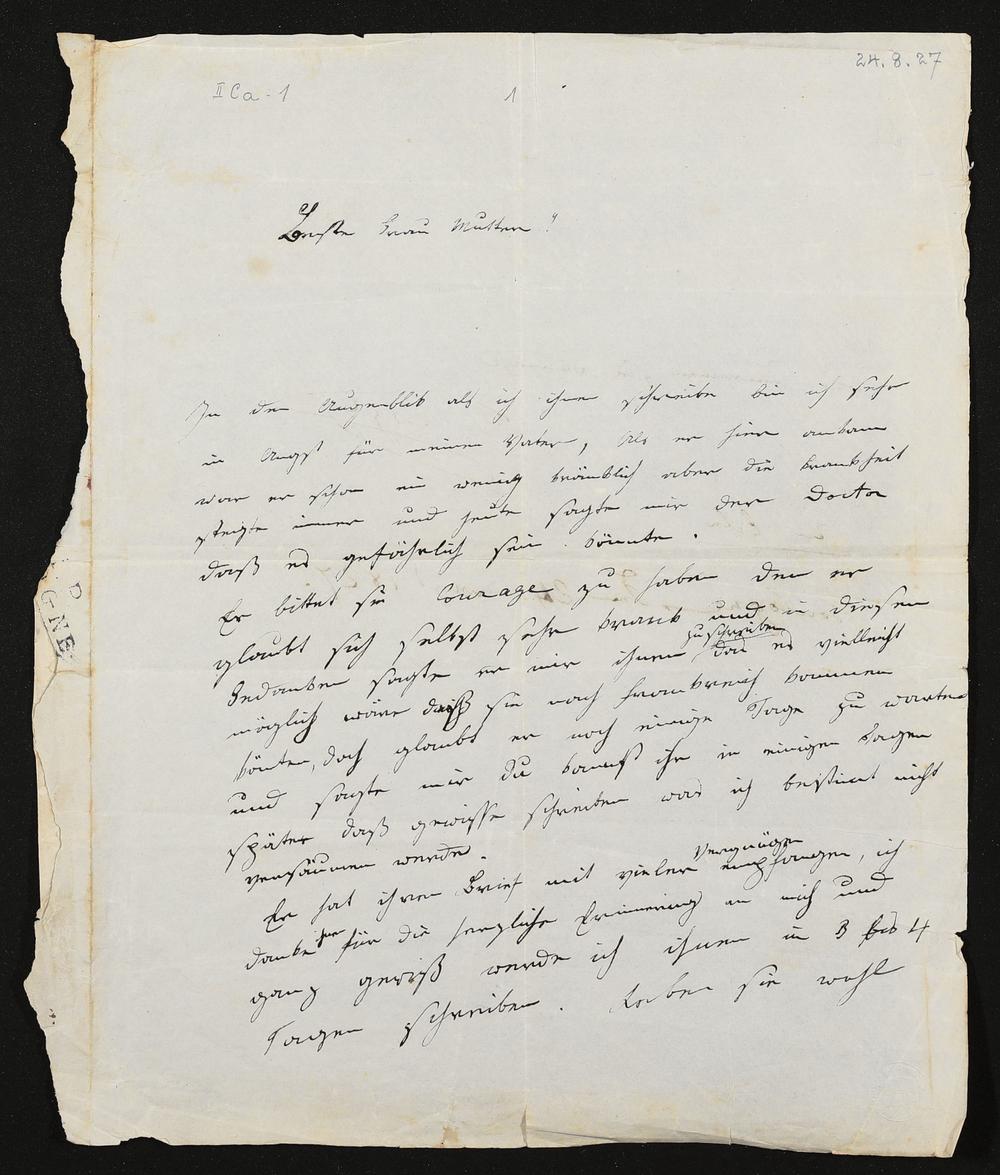 24.8.27
II Ca-1
1
Beste Frau Mutter!
In dem Augenblik als ich ihnen schreibe bin ich sehr
in Angst für meinen Vater, als er hier ankam
war er schon ein wenig kränklich aber die Krankheit
steigte immer und heute sagte mir der Doctor
daß es gefährlich sein könnte.
Er bittet sie Courage zu haben den er
glaubt sich selbst sehr krank und in diesen
zu schreiben
Gedanken sagte er mir ihnen das es vielleicht
möglich wäre daß sie nach Frankreich kommen
könten, doch glaubt er noch einige Tage zu warten
und sagte mir du kannst ihr in einigen Tagen
später daß gewisse schreiben was ich bestimt nicht
versäumen werde.
Vergnügen
Er hat ihren Brief mit vielen empfangen, ich
danke ihnen für die herzliche Erinnerung an mich und
ganz gewiß werde ich ihnen in 3 bis 4
Tagen schreiben. Leben sie wohl
GNE